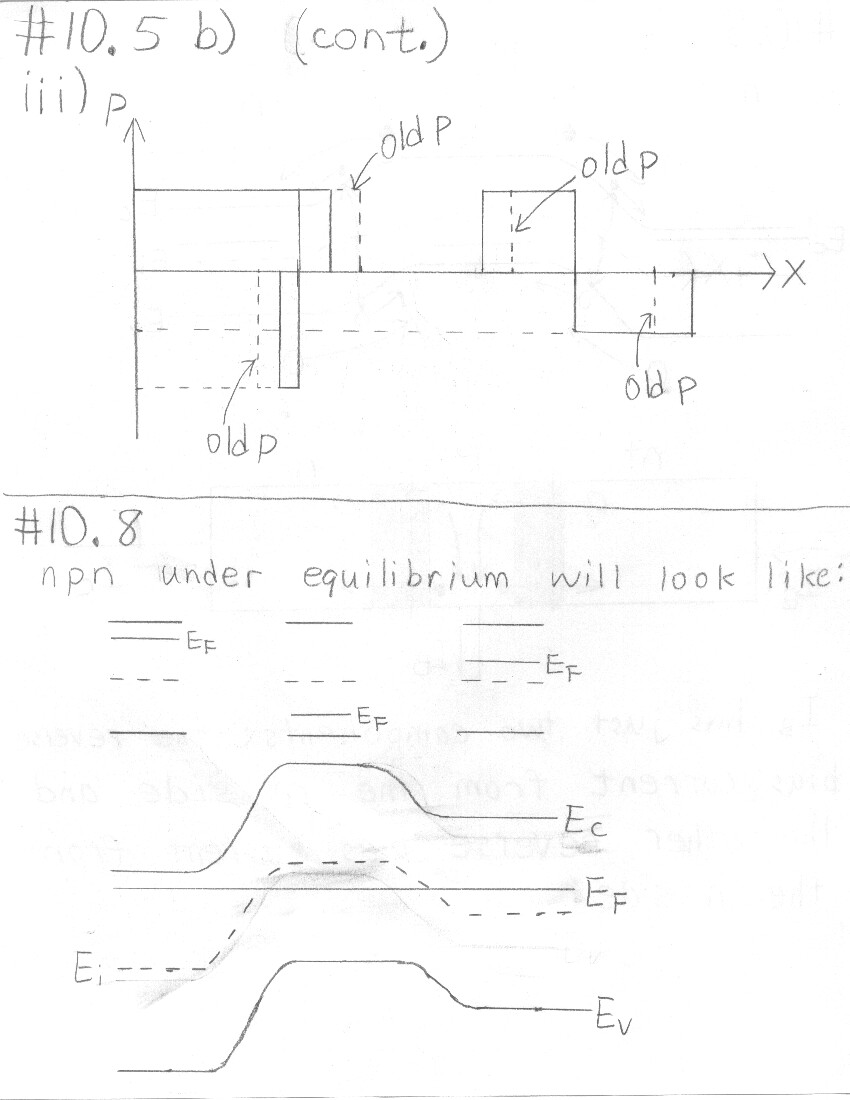 #10.5 b) (cont.)
iii) P
old P
old P
X
old P
old P
#10.8
npn under equilibrium will look like:
E_F
E_F
E_F
E_C
E_F
E_i
E_V